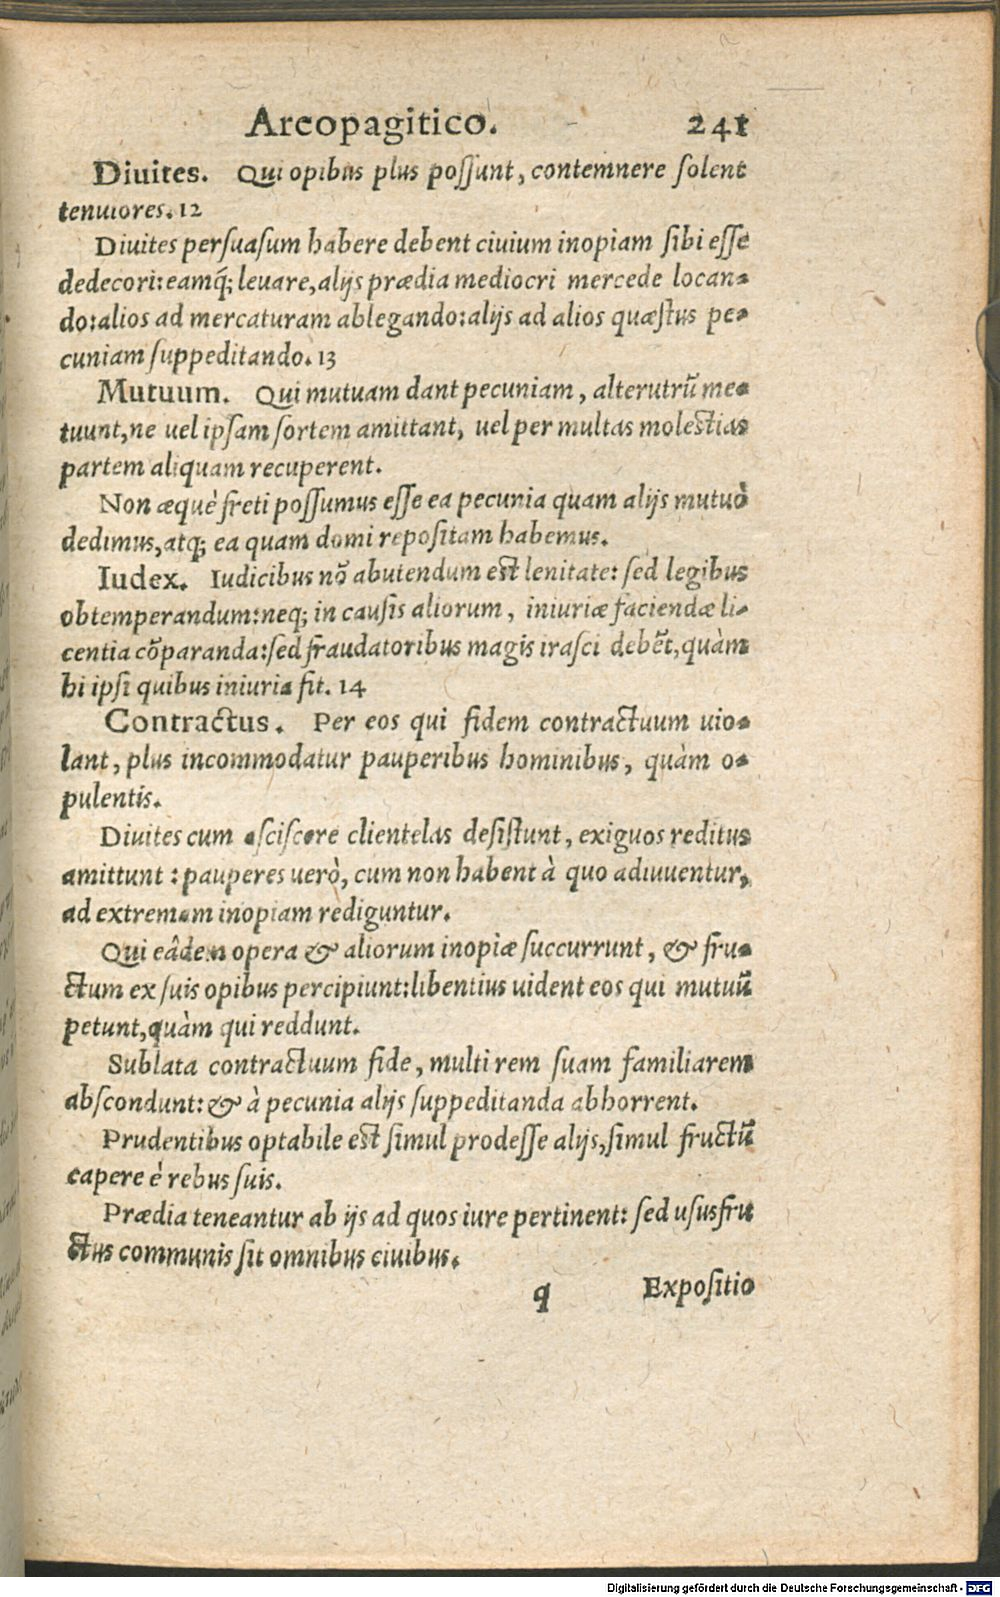 Areopagitico. 241
Diuites. Qui opibus plus poſſunt, contemnere ſolent
tenuiores. 12
Diuites perſuaſum habere debent ciuium inopiam ſibi eſſe
dedecori: eamq́; leuare, alijs prædia mediocri mercede locan-
do: alios ad mercaturam ablegando: alijs ad alios quæſtus pe-
cuniam ſuppeditando. 13
Mutuum. Qui mutuam dant pecuniam, alterutrũ me-
tuunt, ne uel ipſam ſortem amittant, uel per multas moleſtias
partem aliquam recuperent.
Non æquè freti poſſumus eſſe ea pecunia quam alijs mutuò
dedimus, atq; ea quam domi repoſitam habemus.
Iudex. Iudicibus nõ abutendum eſt lenitate: ſed legibus
obtemperandum: neq; in cauſis aliorum, iniuriæ faciendæ li-
centia cõparanda: ſed fraudatoribus magis iraſci debẽt, quàm
hi ipſi quibus iniuria fit. 14
Contractus. Per eos qui fidem contractuum uio-
lant, plus incommodatur pauperibus hominibus, quàm o-
pulentis.
Diuites cum aſciſcere clientelas deſiſtunt, exiguos reditus
amittunt: pauperes uerò, cum non habent à quo adiuuentur,
ad extremam inopiam rediguntur.
Qui eâdem opera & aliorum inopiæ ſuccurrunt, & fru-
ctum ex ſuis opibus percipiunt: libentius uident eos qui mutuũ
petunt, quàm qui reddunt.
Sublata contractuum fide, multi rem ſuam familiarem
abſcondunt: & à pecunia alijs ſuppeditanda abhorrent.
Prudentibus optabile eſt ſimul prodeſſe alijs, ſimul fructũ
capere è rebus ſuis.
Prædia teneantur ab ijs ad quos iure pertinent: ſed uſusfru
ctus communis ſit omnibus ciuibus.
q Expoſitio
Digitalisierung gefördert durch die Deutsche Forschungsgemeinschaft - DFG